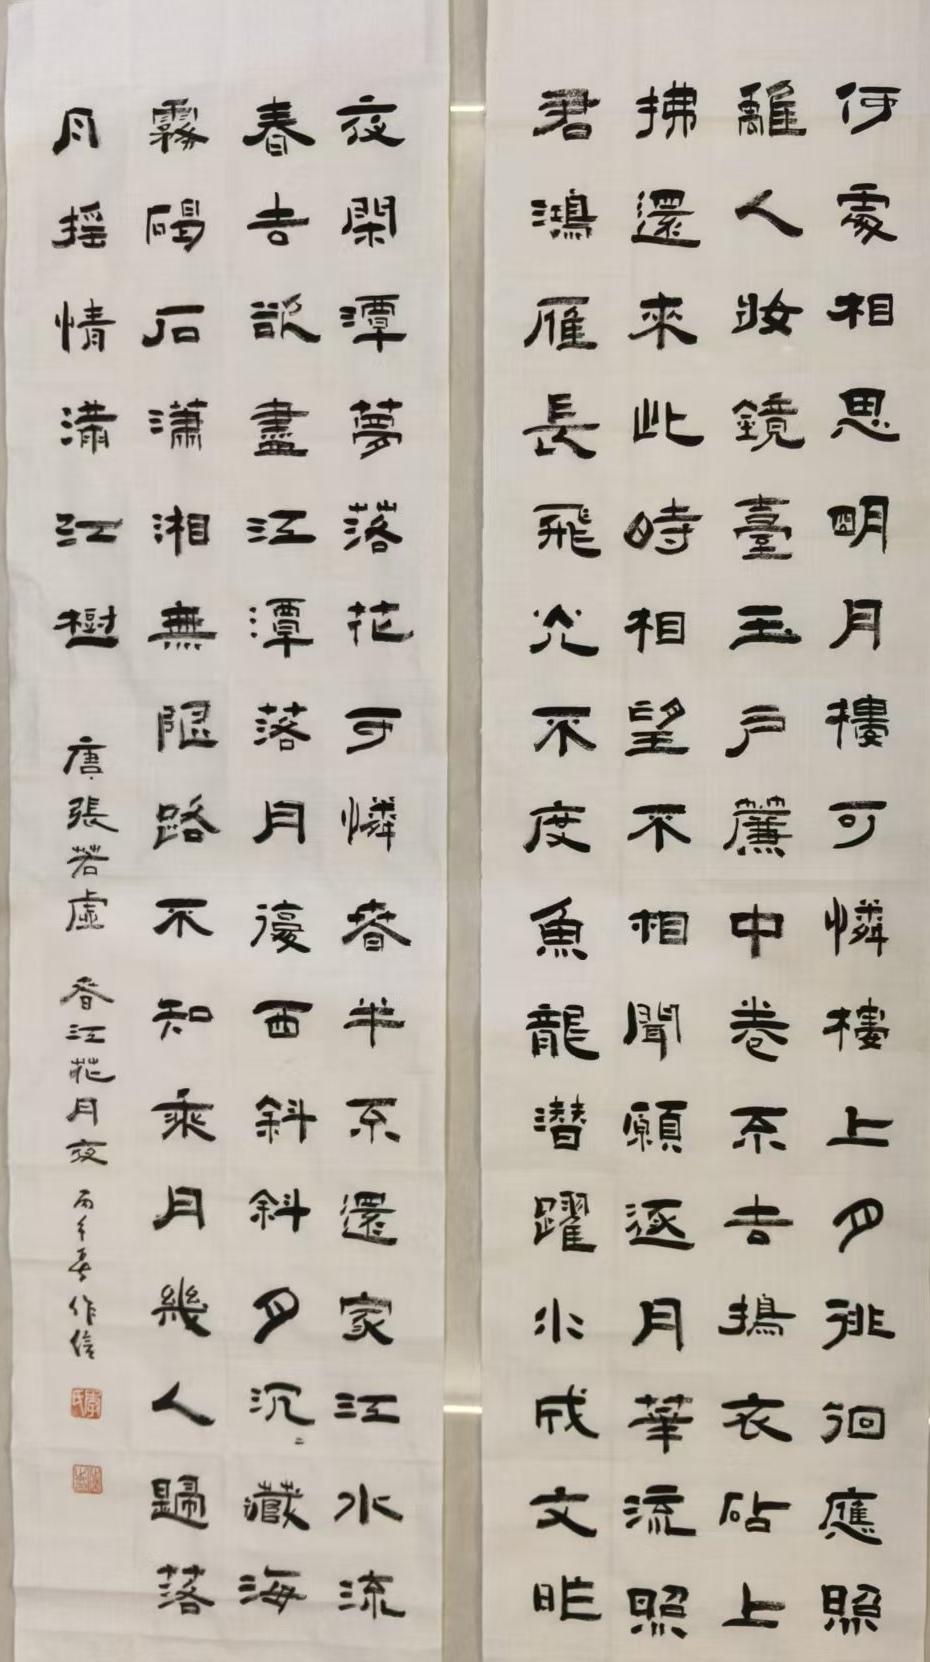 何處相思明月樓可憐樓上月徘徊應照
離人妝鏡臺玉戶簾中卷不去搗衣砧上
拂還來此時相望不相聞願逐月華流照
君鴻雁長飛光不度魚龍潛躍水成文昨
夜閑潭夢落花可憐春半不還家江水流
春去欲盡江潭落月復西斜斜月沉〻藏海
霧碣石瀟湘無限路不知乘月幾人歸落
月搖情滿江樹 唐張若虛 春江花月夜 丙午春作信
李氏